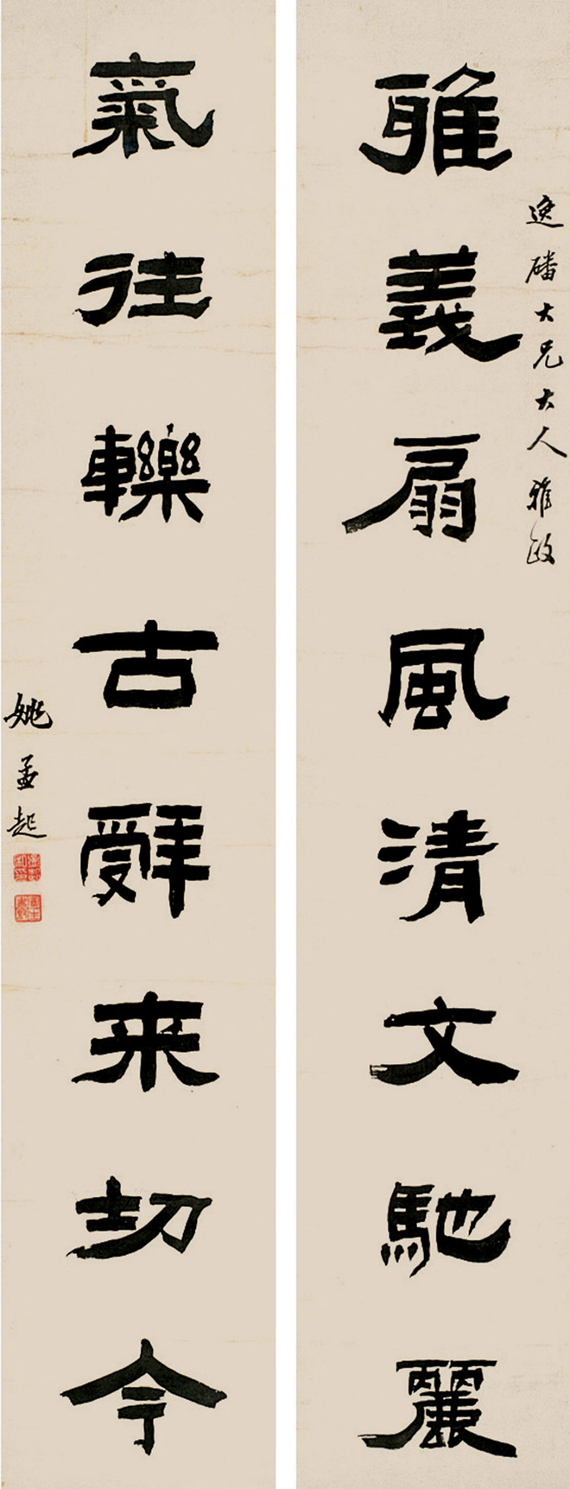 逸磻大兄大人雅政
雅義扇風清文馳麗
氣往轢古辤来切今
姚孟起